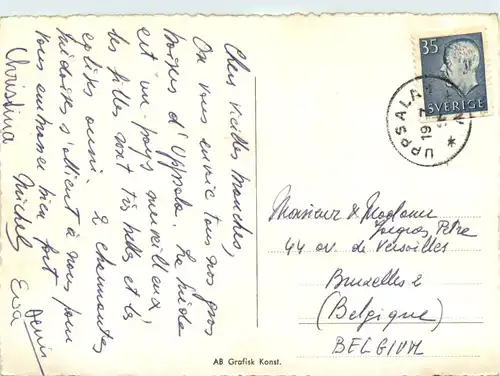 Chers vieilles branches,
On vous envoie tous nos gros
baisers d'Uppsala. La Suède
est un pays merveilleux,
les filles sont très belles et les
églises aussi. 2 charmantes
suédoises s'allient à nous pour
vous embrasser bien fort
Christina Michel Eva Denis
35
SVERIGE
UPPSALA
Monsieur & Madame
Petre
44 av. de Versailles
Bruxelles 2
(Belgique)
BELGIUM
AB Grafisk Konst.